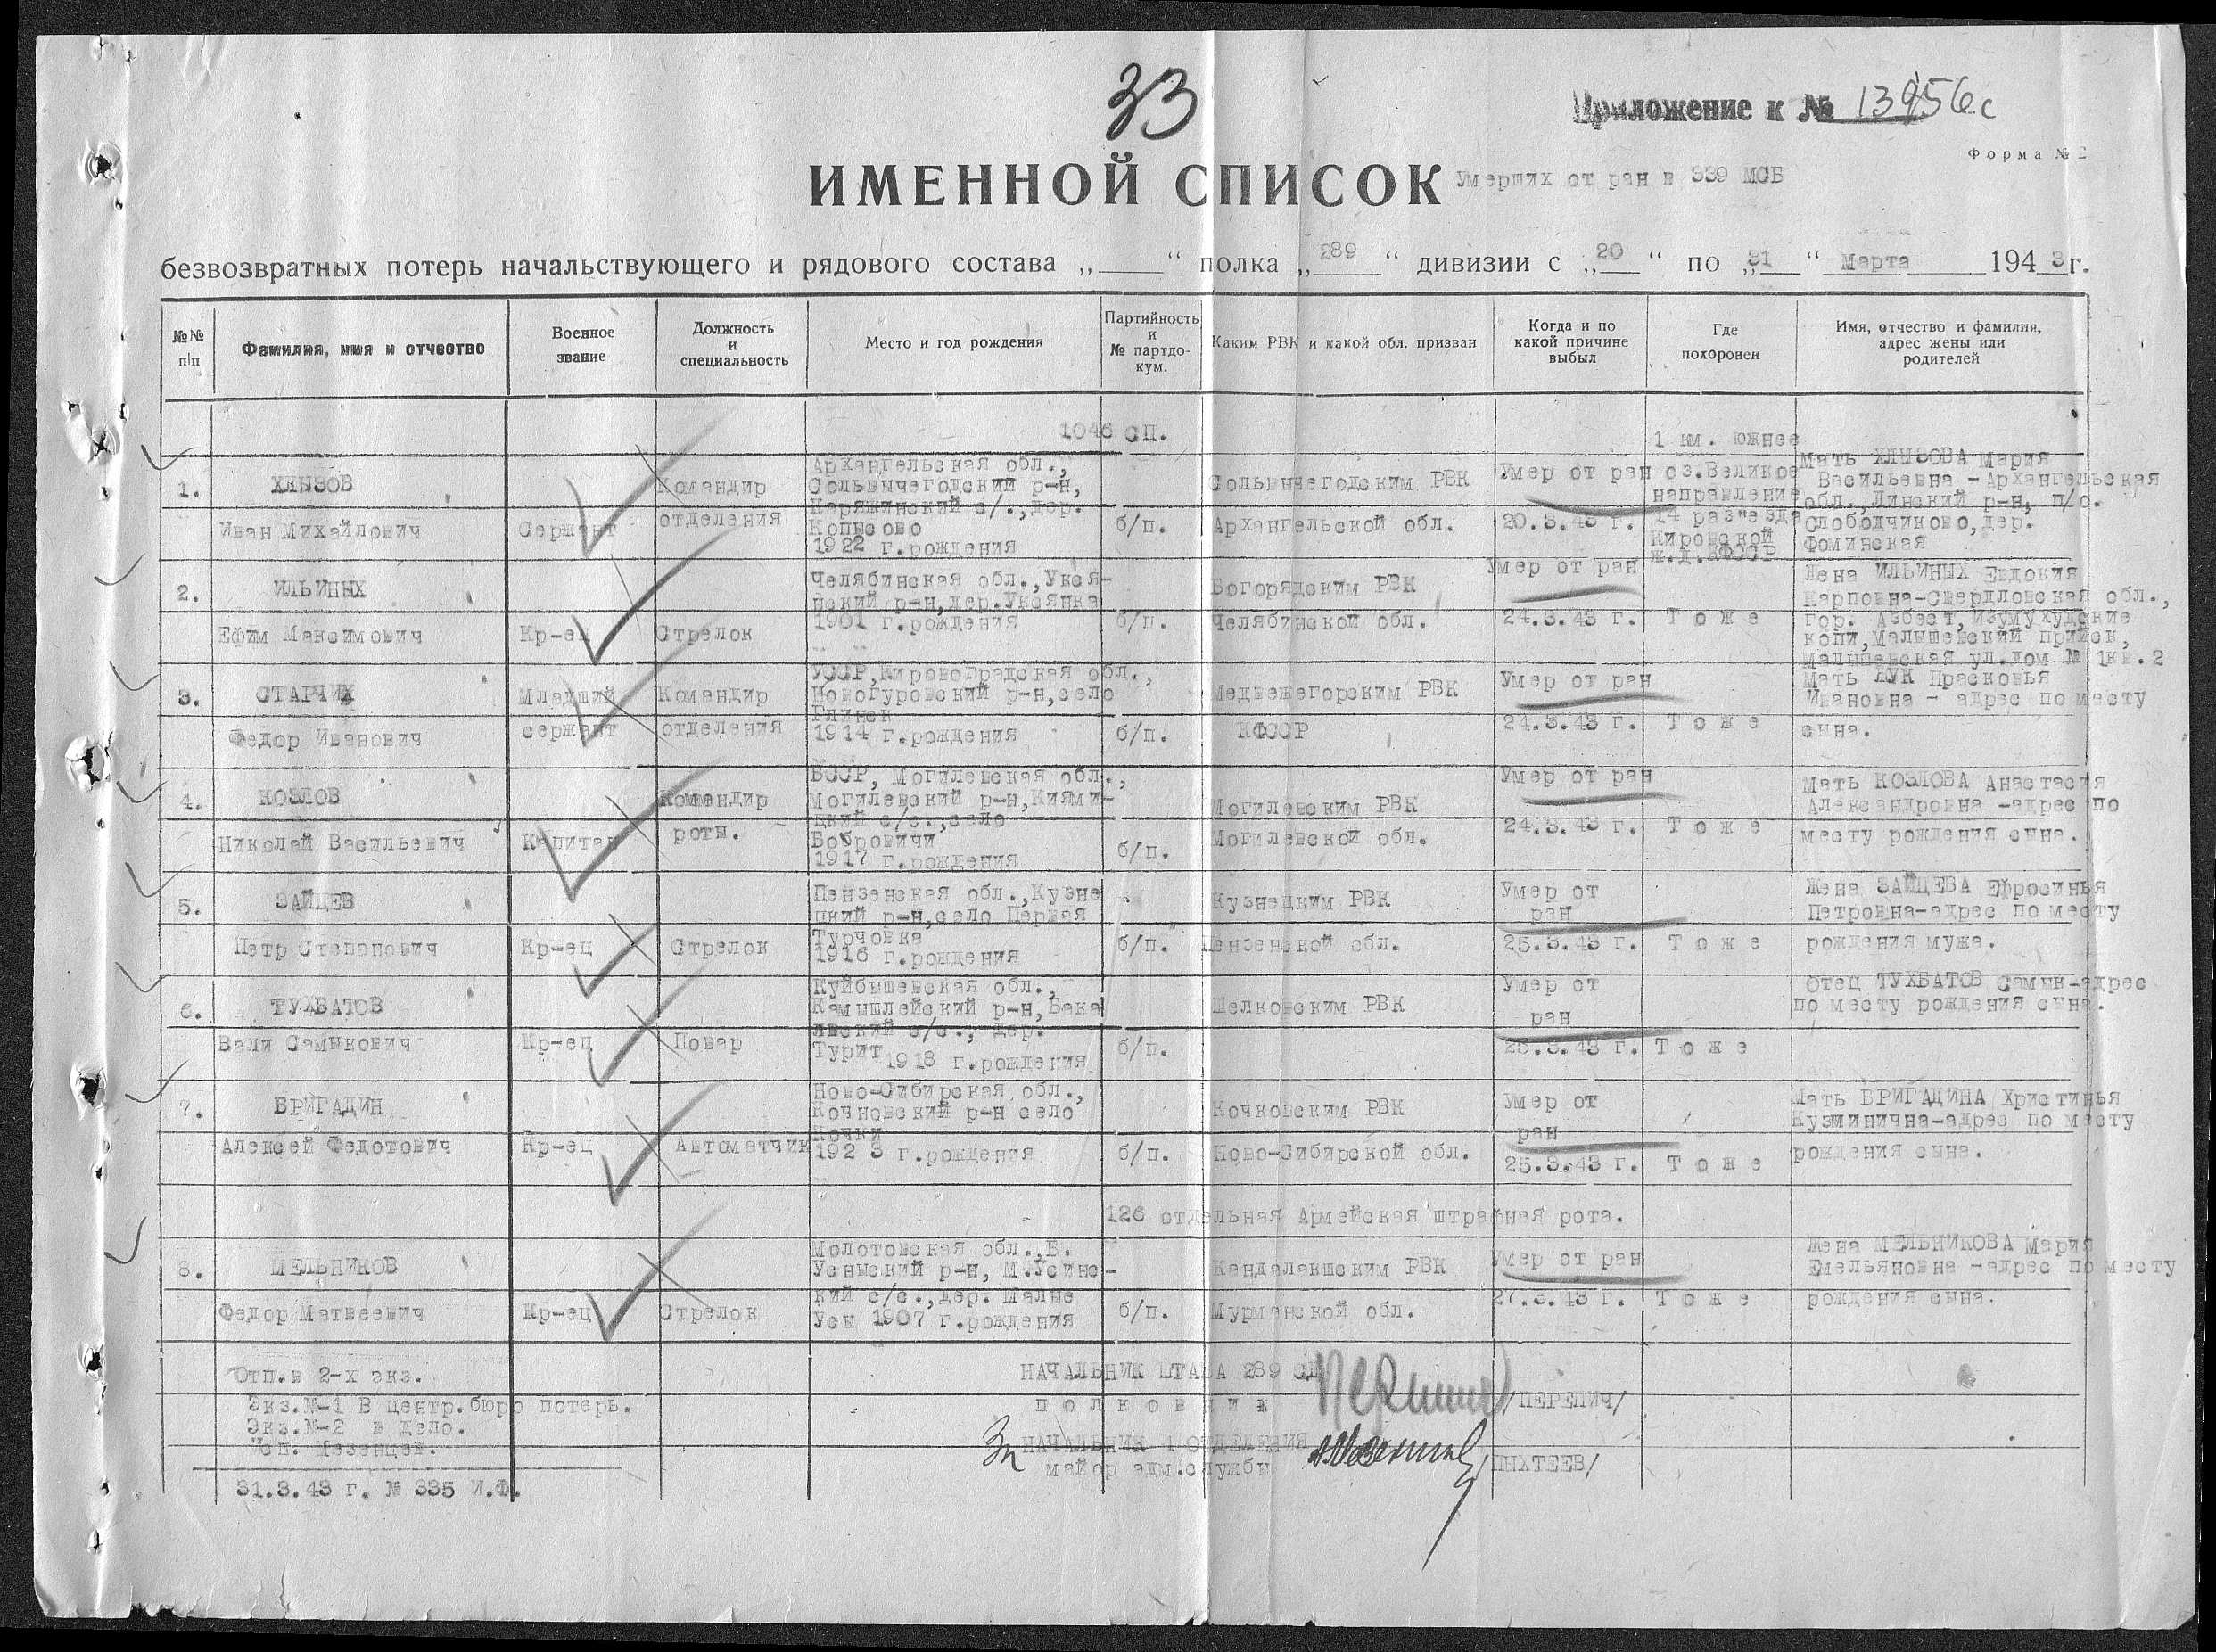 33
Приложение к № 13956с
Форма № 2
ИМЕННОЙ СПИСОК Умерших от ран в 339 МСБ
безвозвратных потерь начальствующего и рядового состава „ “ полка „289“ дивизии с „20“ по „31“ Марта 1943г.
№№ п/п
Фамилия, имя и отчество
Военное звание
Должность и специальность
Место и год рождения
Партийность и № партдокум.
Каким РВК и какой обл. призван
Когда и по какой причине выбыл
Где похоронен
Имя, отчество и фамилия, адрес жены или родителей
1046 СП.
1.
ХЛЫЗОВ
Иван Михайлович
Сержант
Командир
отделения
Архангельская обл.,
Сольвычегодский р-н,
Каряжинский с/., дер.
Копысово
1922 г.рождения
б/п.
Сольвычегодским РВК
Архангельской обл.
Умер от ран
20.3.43 г.
1 км. южнее
оз.Великое
направление
14 раз"езда
Кировской
ж.д.КФССР
Мать ХЛЫЗОВА Мария
Васильевна -Архангельская
обл.,Линский р-н, п/о.
Слободчиково,дер.
Фоминская
2.
ИЛЬИНЫХ
Ефим Максимович
Кр-ец
Стрелок
Челябинская обл.,Укся-
нский р-н,дер.Уксянка
1901 г.рождения
б/п.
Богорядским РВК
Челябинской обл.
Умер от ран
24.3.43 г.
Тоже
Жена ИЛЬИНЫХ Евдокия
Карповна-Свердловская обл.,
гор. Азбест,Изумухудские
копи,Малышевский прииск,
Малышевская ул.дом № 1кв.2
3.
СТАРЧИК
Федор Иванович
Младший
сержант
Командир
отделения
УССР,Кировоградская обл.,
Новогуровский р-н,село
Глинск
1914 г.рождения
б/п.
Медвежегорским РВК
КФССР
Умер от ран
24.3.43 г.
Тоже
Мать ЖУК Прасковья
Ивановна - адрес по месту
сына.
4.
КОЗЛОВ
Николай Васильевич
Капитан
Командир
роты.
БССР, Могилевская обл.,
Могилевский р-н,Киями-
цкий с/с.,село
Бовровичи
1917 г.рождения
б/п.
Могилевским РВК
Могилевской обл.
Умер от ран
24.3.43 г.
Тоже
Мать КОЗЛОВА Анастасия
Александровна -адрес по
месту рождения сына.
5.
ЗАЙЦЕВ
Петр Степанович
Кр-ец
Стрелок
Пензенская обл.,Кузне
цкий р-н,село Первая
Турчовка
1916 г.рождения
б/п.
Кузнецким РВК
Пензенской обл.
Умер от
ран
25.3.43 г.
Тоже
Жена ЗАЙЦЕВА Ефросинья
Петровна-адрес по месту
рождения мужа.
6.
ТУХБАТОВ
Вали Самыкович
Кр-ец
Повар
Куйбышевская обл.,
Камышлейский р-н,Бака
евский с/с., дер.
Турит 1918 г.рождения
б/п.
Шелковским РВК
Умер от
ран
25.3.43 г.
Тоже
Отец ТУХБАТОВ Самык-адрес
по месту рождения сына.
7.
БРИГАДИН
Алексей Федотович
Кр-ец
Автоматчик
Ново-Сибирская обл.,
Кочновский р-н село
Кочки
1923 г.рождения
б/п.
Кочковским РВК
Ново-Сибирской обл.
Умер от
ран
25.3.43 г.
Тоже
Мать БРИГАДИНА Христинья
Кузминична-адрес по месту
рождения сына.
126 отдельная Армейская штрафная рота.
8.
МЕЛЬНИКОВ
Федор Матвеевич
Кр-ец
Стрелок
Молотовская обл.,Б.
Усныский р-н, М.Усинс-
кий с/с.,дер. Малые
Усы 1907 г.рождения
б/п.
Кандалакшским РВК
Мурманской обл.
Умер от ран
27.3.43 г.
Тоже
Жена МЕЛЬНИКОВА Мария
Емельяновна -адрес по месту
рождения сына.
Отп.в 2-х экз.
Экз.№-1 В центр.бюро потерь.
Экз.№-2 в дело.
Исп. Мезенцев.
31.3.43 г. № 335 И.Ф.
НАЧАЛЬНИК ШТАБА 289 СД
полковник
/ПЕРЕПИЧ/
Зп НАЧАЛЬНИК 4 ОТДЕЛЕНИЯ
майор адм.службы
/ПЫХТЕЕВ/